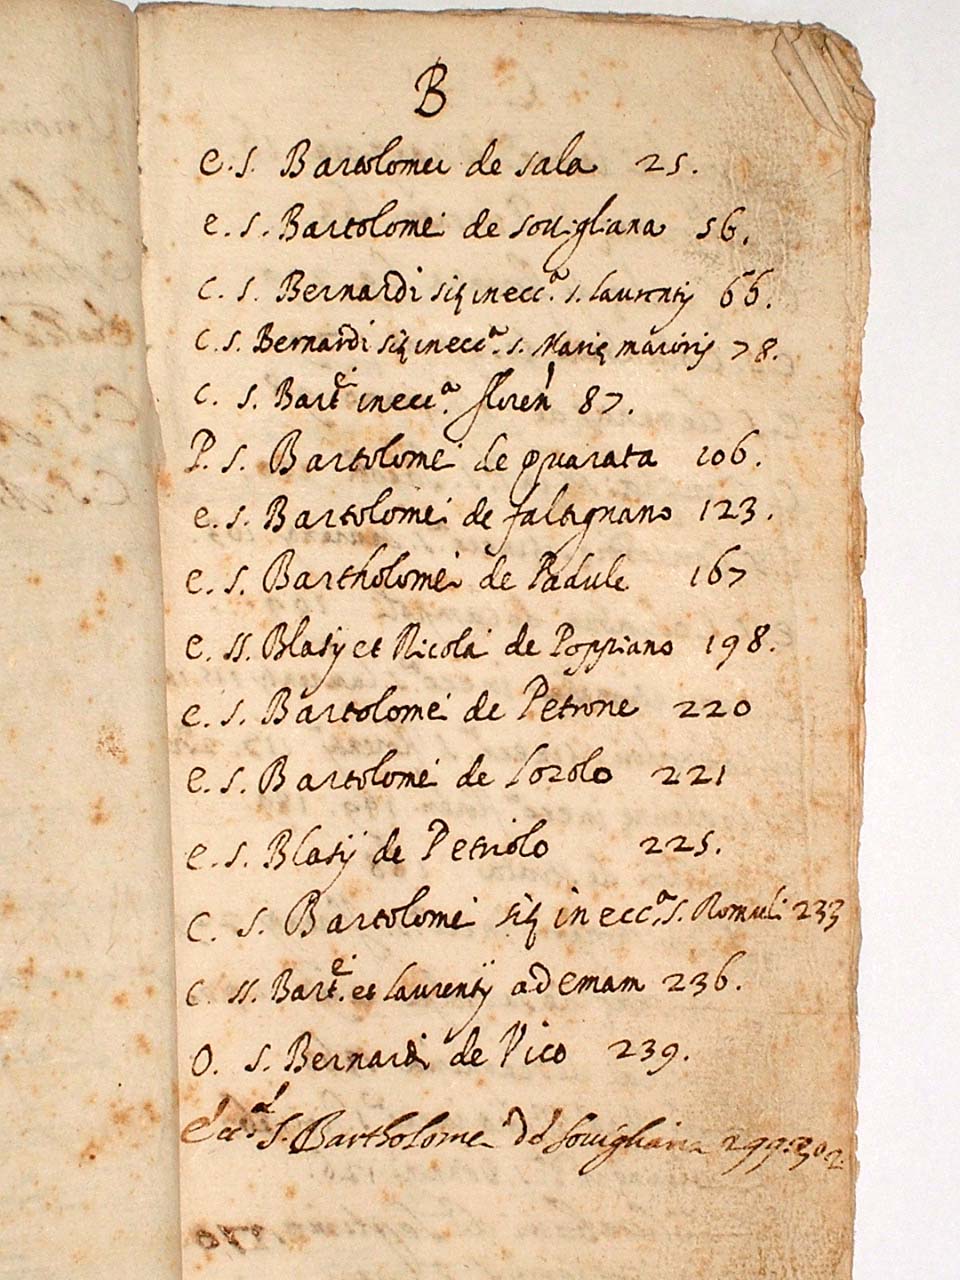 B
e. s. Bartolomei de sala 25.
e. s. Bartolomei de sovigliana 56.
C. s. Bernardi siq in ecc.ᵃ s. Laurentij 66.
C. s. Bernardi siq in ecc.ᵃ s. Marię maioris 78.
C. s. Bart.ⁱ in ecc.ᵃ floren 87.
P. s. Bartolomei de quarata 106.
e. s. Bartolomei de faltignano 123.
e. s. Bartholomei de Padule 167
e. ss. Blasij et Nicolai de Poppiano 198.
e. s. Bartolomei de Petrone 220
e. s. Bartolomei de Lozolo 221
e. s. Blasij de Petriolo 225.
C. s. Bartolomei siq in ecc.ᵃ s. Romuli 233
C. ss. Bart.ⁱ et Laurentij ad emam 236.
O. s. Bernardi de Vico 239.
s. Bartholomei de sovigliana 299. 302.